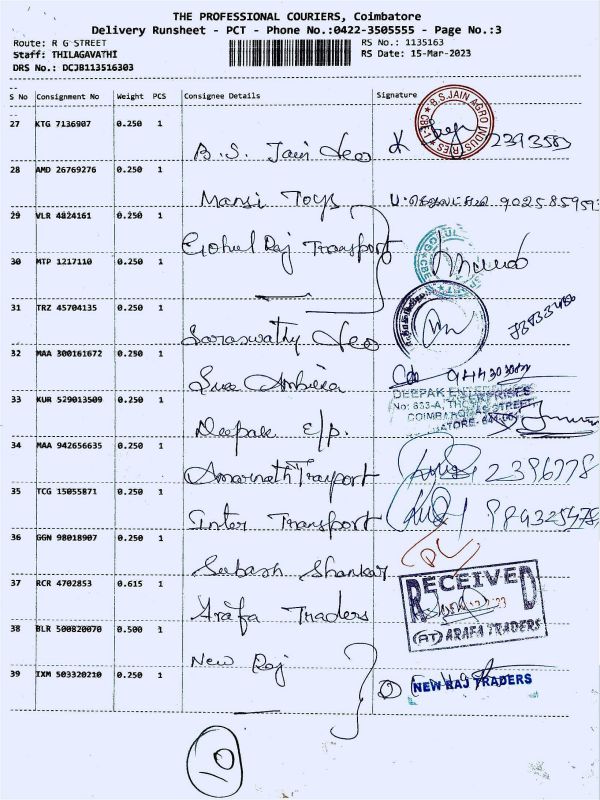 THE PROFESSIONAL COURIERS, Coimbatore
Delivery Runsheet - PCT - Phone No.:0422-3505555 - Page No.:3
Route: R G STREET
RS No.: 1135163
Staff: THILAGAVATHI
RS Date: 15-Mar-2023
DRS No.: DCJB113516303
S No Consignment No Weight PCS Consignee Details Signature
27 KTG 7136907 0.250 1
B.S. JAIN AGRO INDUSTRIES CBE-1
B.S. Jain Leo
28 AMD 26769276 0.250 1
Mansi Toys
29 VLR 4824161 0.250 1
Gokul Raj Transport
30 MTP 1217110 0.250 1
31 TRZ 45704135 0.250 1
Saraswathy Leo
32 MAA 300161672 0.250 1
Siva Ambika
33 KUR 529013509 0.250 1
DEEPAK ENTERPRISES
No: 633-A,
STREET
Deepak E/p.
34 MAA 942656635 0.250 1
Amarnath Tranport 2396778
35 TCG 15055871 0.250 1
Inter Transport
36 GGN 98018907 0.250 1
Subash Shankar
37 RCR 4702853 0.615 1
RECEIVED
Arafa Traders
(AT) ARAFA TRADERS
38 BLR 500820070 0.500 1
New Raj
39 IXM 503320210 0.250 1
NEW RAJ TRADERS
10